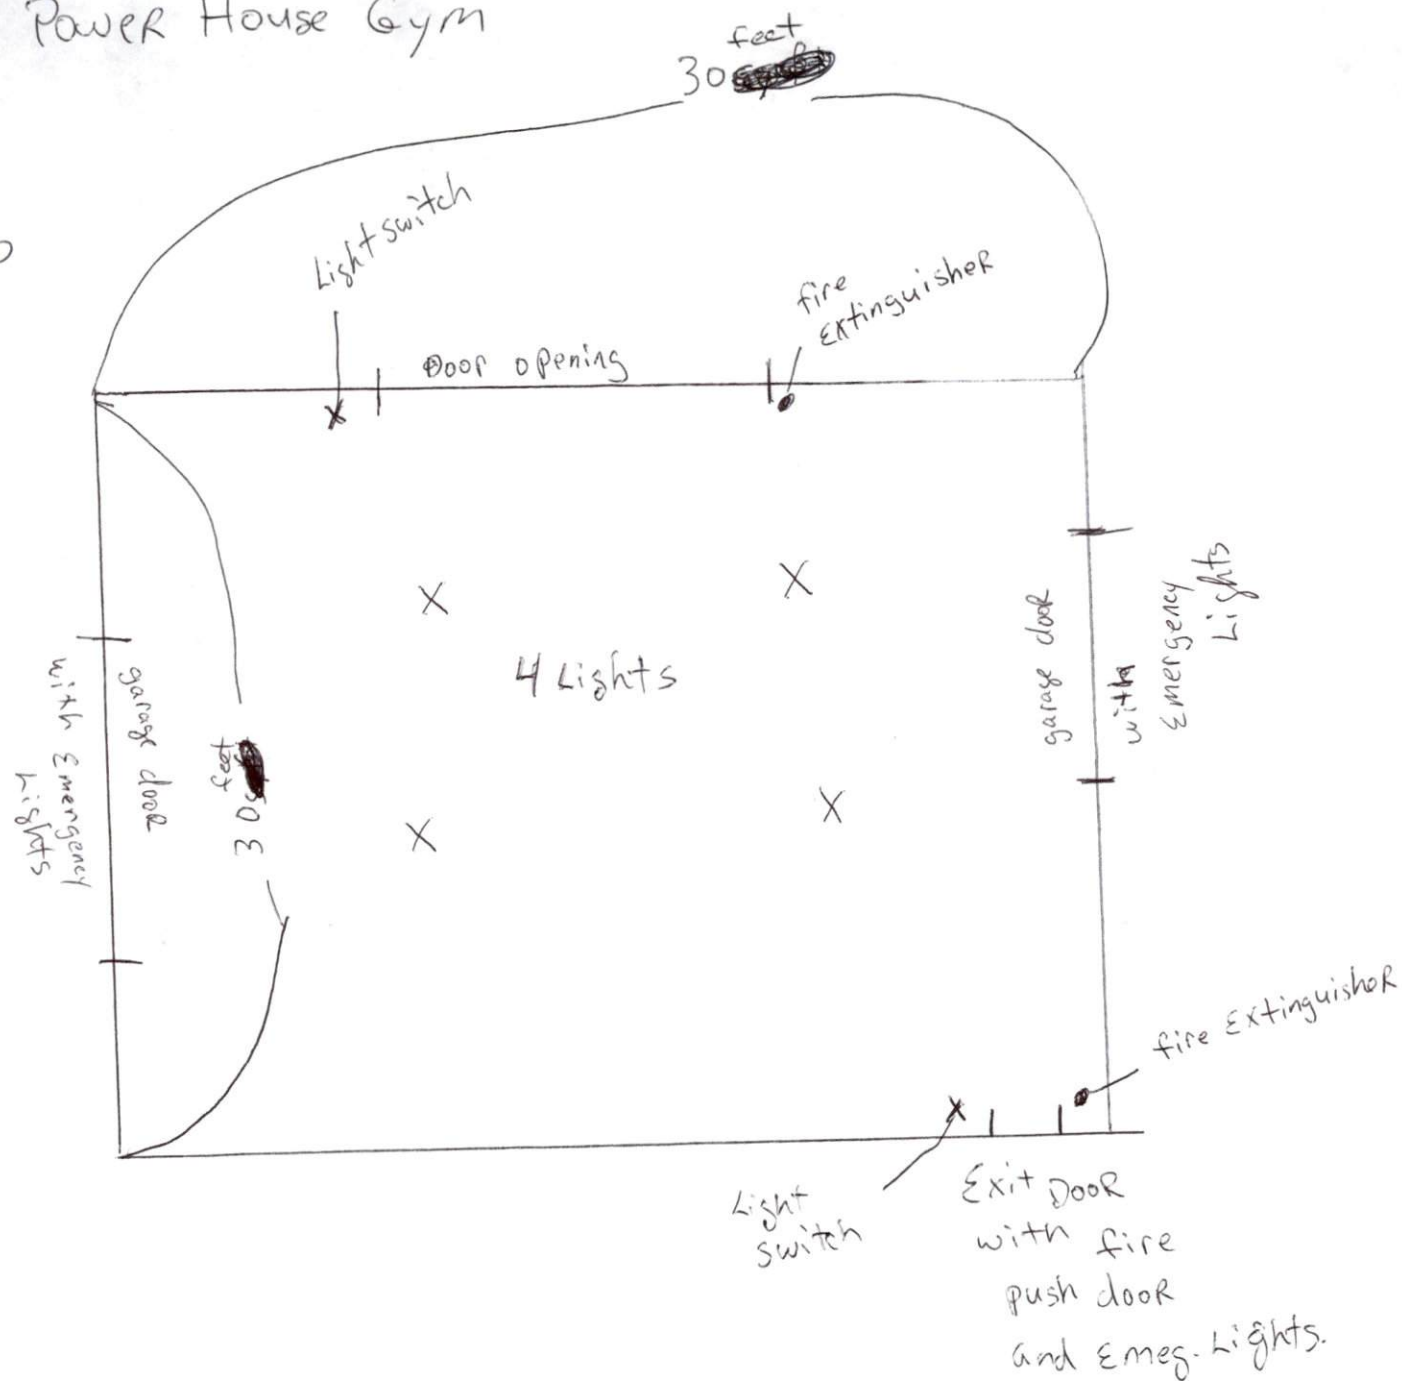 Power House Gym
feet
30
Light switch
fire
Extinguisher
Door opening
4 Lights
garage door
with Emergency
Lights
feet
30
garage door
with
Emergency
Lights
fire Extinguisher
Light
switch
Exit Door
with fire
push door
and Emeg. Lights.